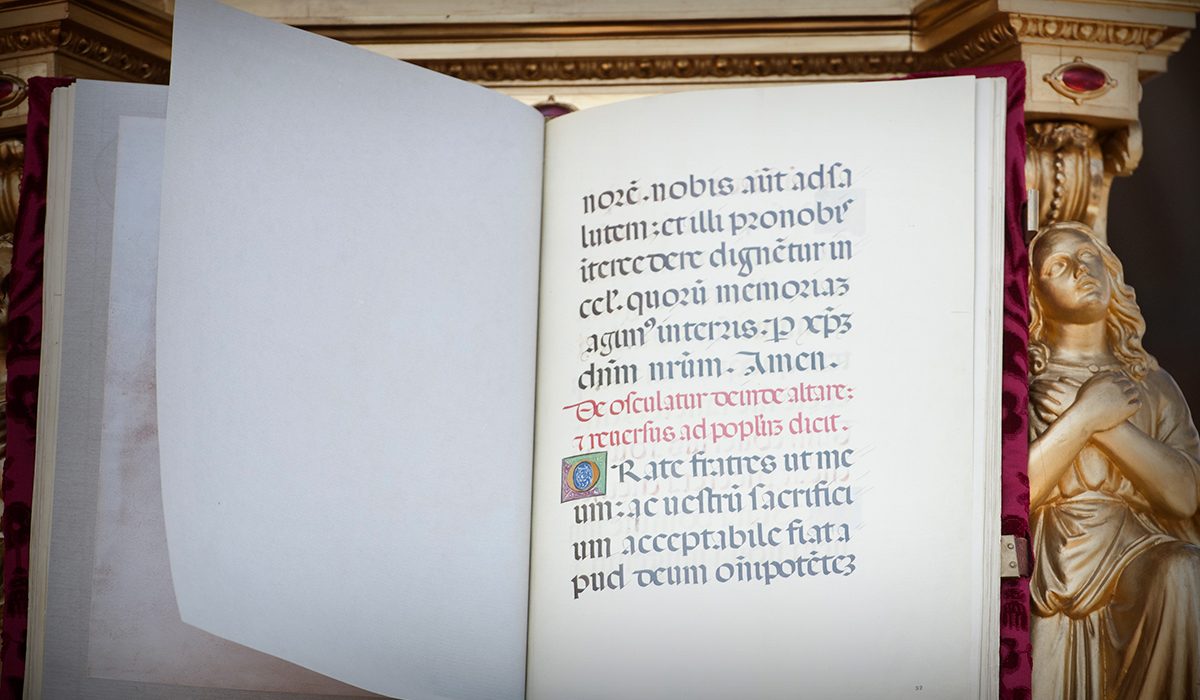 norē. nobis aūt ad sa
lutem: et illi pro nobis
itercedere dignētur in
cel'. quorū memoriaʒ
agimꝰ in terris. P xp̄ʒ
dn̄m nr̄um. Amen.
De osculatur deinde altare:
⁊ reuersus ad populuʒ dicit.
ORate fratres ut me
um: ac uestrū sacrifici
um acceptabile fiat a
pud deum om̄ipotēteʒ